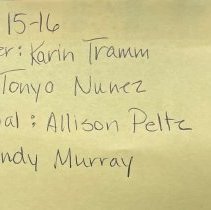 15-16
er: Karin Tramm
Tonyo Nunez
pal: Allison Peltz
ndy Murray